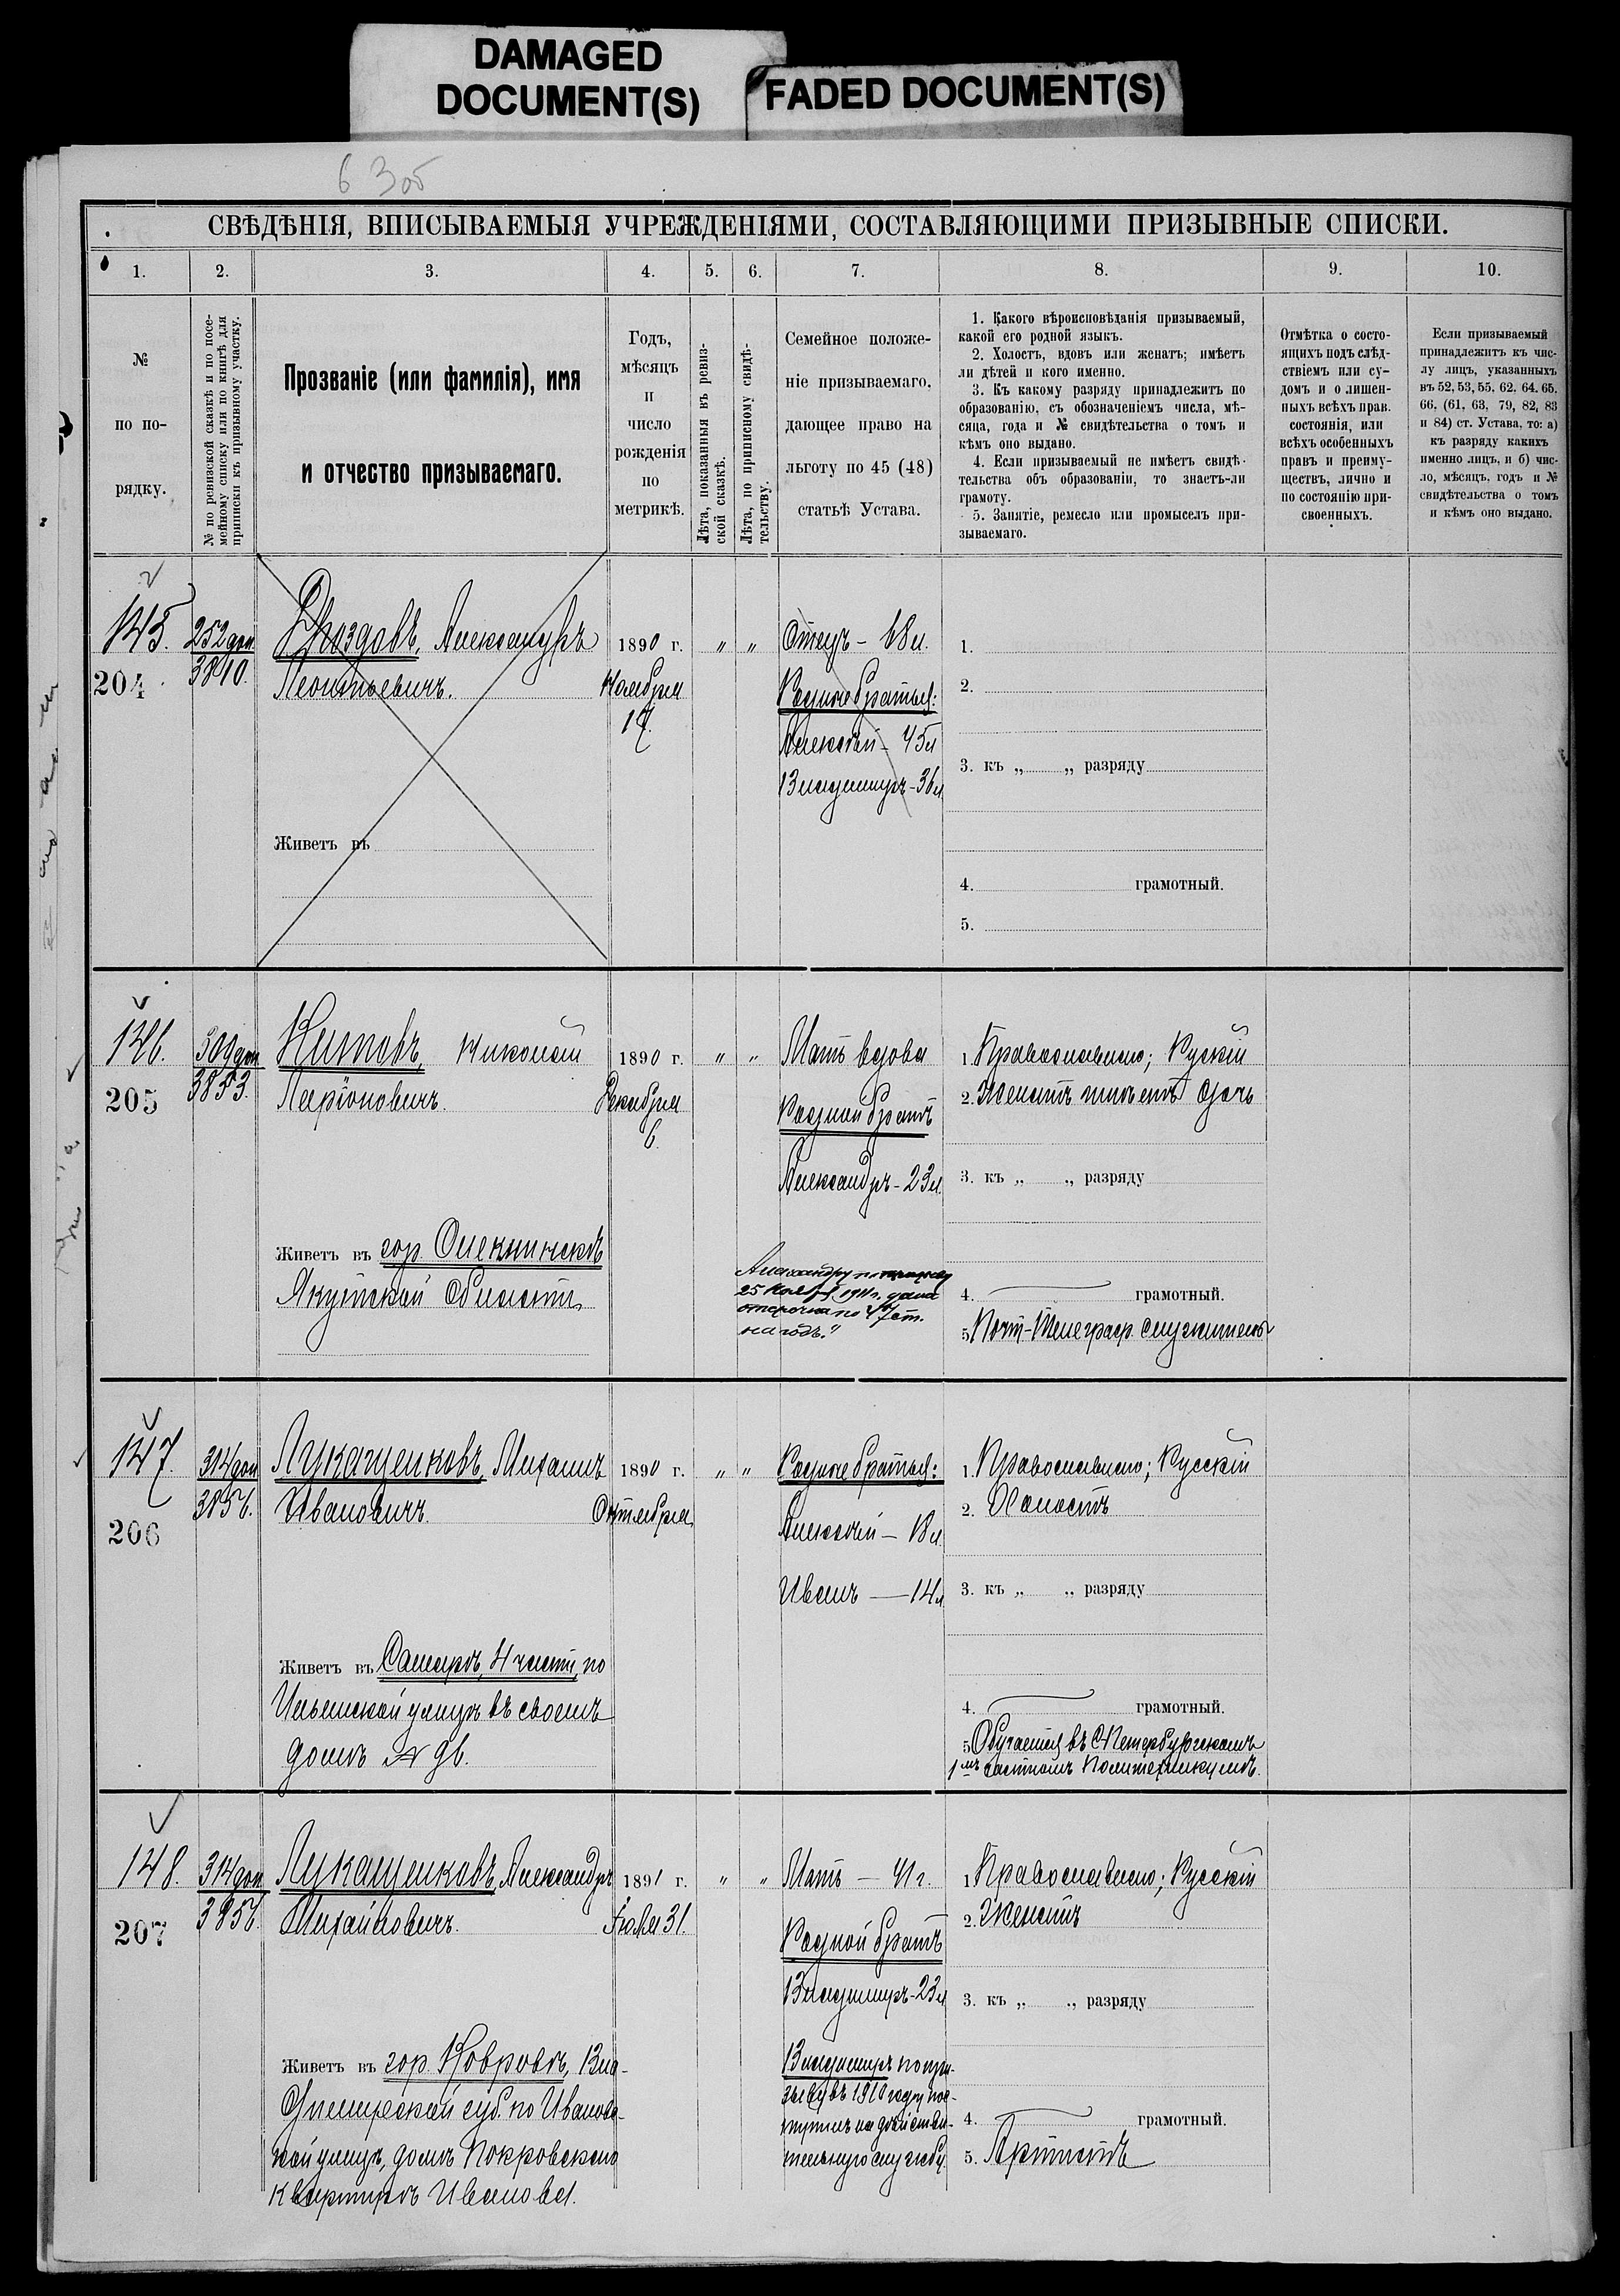 DAMAGED
DOCUMENT(S)
FADED DOCUMENT(S)
СВѢДѢНІЯ, ВПИСЫВАЕМЫЯ УЧРЕЖДЕНІЯМИ, СОСТАВЛЯЮЩИМИ ПРИЗЫВНЫЕ СПИСКИ.
1. 2. 3. 4. 5. 6. 7. 8. 9. 10.
№
по по-
рядку.
№ по ревизской сказкѣ и по посе-
мейному списку или по книгѣ для
приписки къ призывному участку.
Прозваніе (или фамилія), имя
и отчество призываемаго.
Годъ,
мѣсяцъ
и
число
рожденія
по
метрикѣ.
Лѣта, показанныя въ ревиз-
ской сказкѣ.
Лѣта, по приписному свидѣ-
тельству.
Семейное положе-
ніе призываемаго,
дающее право на
льготу по 45 (48)
статьѣ Устава.
1. Какого вѣроисповѣданія призываемый,
какой его родной языкъ.
2. Холостъ, вдовъ или женатъ; имѣетъ
ли дѣтей и кого именно.
3. Къ какому разряду принадлежитъ по
образованію, съ обозначеніемъ числа, мѣ-
сяца, года и № свидѣтельства о томъ и
кѣмъ оно выдано.
4. Если призываемый не имѣетъ свидѣ-
тельства объ образованіи, то знаетъ-ли
грамоту.
5. Занятіе, ремесло или промыселъ при-
зываемаго.
Отмѣтка о состо-
ящихъ подъ слѣд-
ствіемъ или су-
домъ и о лишен-
ныхъ всѣхъ прав.
состоянія, или
всѣхъ особенныхъ
правъ и преиму-
ществъ, лично и
по состоянію при-
своенныхъ.
Если призываемый
принадлежитъ къ чис-
лу лицъ, указанныхъ
въ 52, 53, 55. 62. 64. 65.
66. (61, 63, 79, 82, 83
и 84) ст. Устава, то: а)
къ разряду какихъ
именно лицъ, и б) чис-
ло, мѣсяцъ, годъ и №
свидѣтельства о томъ
и кѣмъ оно выдано.
145.
204
252 доп
3810.
Дроздовъ, Александръ
Леонтьевичъ.
Живетъ въ
1890 г.
Ноября
17.
„ „
Отецъ - 68 л.
Родные братья:
Алексѣй - 45 л
Владимиръ - 36 л
1.
2.
3. къ „ „ разряду
4. грамотный.
5.
146.
205
309 доп
3853.
Китовъ, Николай
Ларіоновичъ.
Живетъ въ гор. Олекминскѣ
Якутской области
1890 г.
Декабря
6.
„ „
Мать вдова
Родной братъ
Александръ - 23 л.
Александру по
25 Ноября 1911 г. дана
отсрочка по ст.
на годъ."
1. Православно; Рускій
2. Женатъ имѣетъ дочь
3. къ „ „ разряду
4. грамотный.
5. Почт-Телеграф. служитель
147.
206
314 доп
3856.
Лукащенковъ, Михаилъ
Ивановичъ.
Живетъ въ Самарѣ, 4 части, по
Ильинской улицѣ въ своемъ
домѣ № 96.
1890 г.
Октября
„ „
Родные братья:
Алексѣй - 18 л.
Иванъ - 14 л
1. Православно; Русскій
2. Холостъ
3. къ „ „ разряду
4. грамотный.
5. Обучается въ СПетербургскомъ
1мъ частномъ Политехникумѣ.
148.
207
314 доп
3856.
Лукащенковъ, Александръ
Михайловичъ.
Живетъ въ гор. Ковровѣ, Вла-
димирской губ. по Иванов-
ской улицѣ, домъ Покровскаго
квартирѣ Иванова.
1891 г.
Іюля 31.
„ „
Мать - 41 г.
Родной братъ
Владимиръ - 23 л
Владимиръ по при-
зыву въ 1910 году пос-
тупилъ на дѣйстви-
тельную службу
1. Православно; Русскій
2. Женатъ
3. къ „ „ разряду
4. грамотный.
5. Артистъ